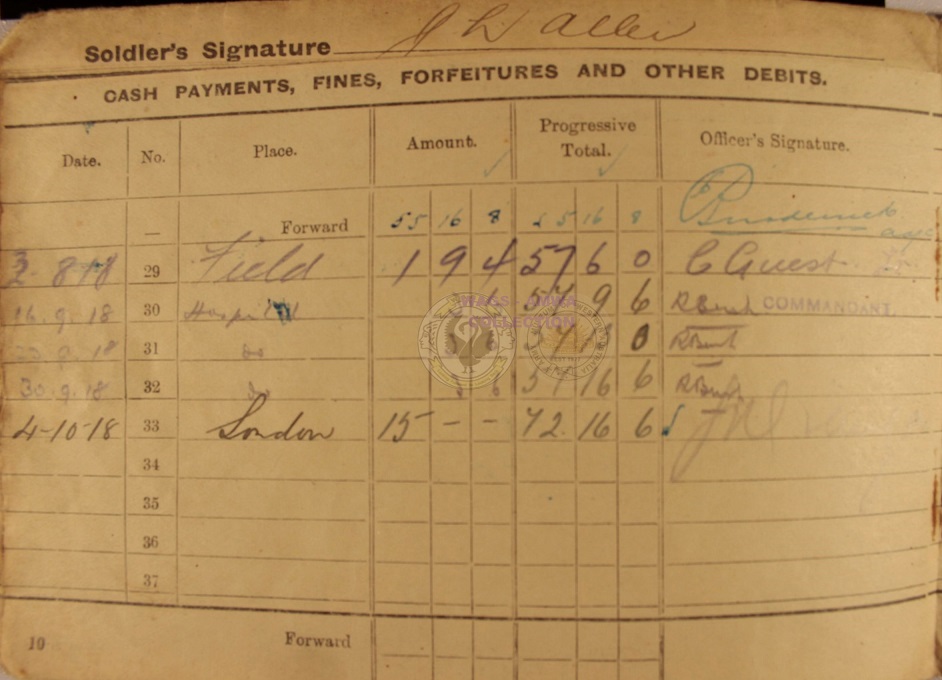 Soldier's Signature J L Allen
CASH PAYMENTS, FINES, FORFEITURES AND OTHER DEBITS.
Date. No. Place. Amount. Progressive Total. Officer's Signature.
— Forward 55 16 8 55 16 8
3-8-18 29 Field 1 9 4 57 6 0 C Guest
16.9.18 30 Hospital 3 6 57 9 6 COMMANDANT
WAGS - OMSA
COLLECTION
31 do 57 0
30.9.18 32 do 3 6 57 16 6
4-10-18 33 London 15 - - 72 16 6
34
35
36
37
10 Forward